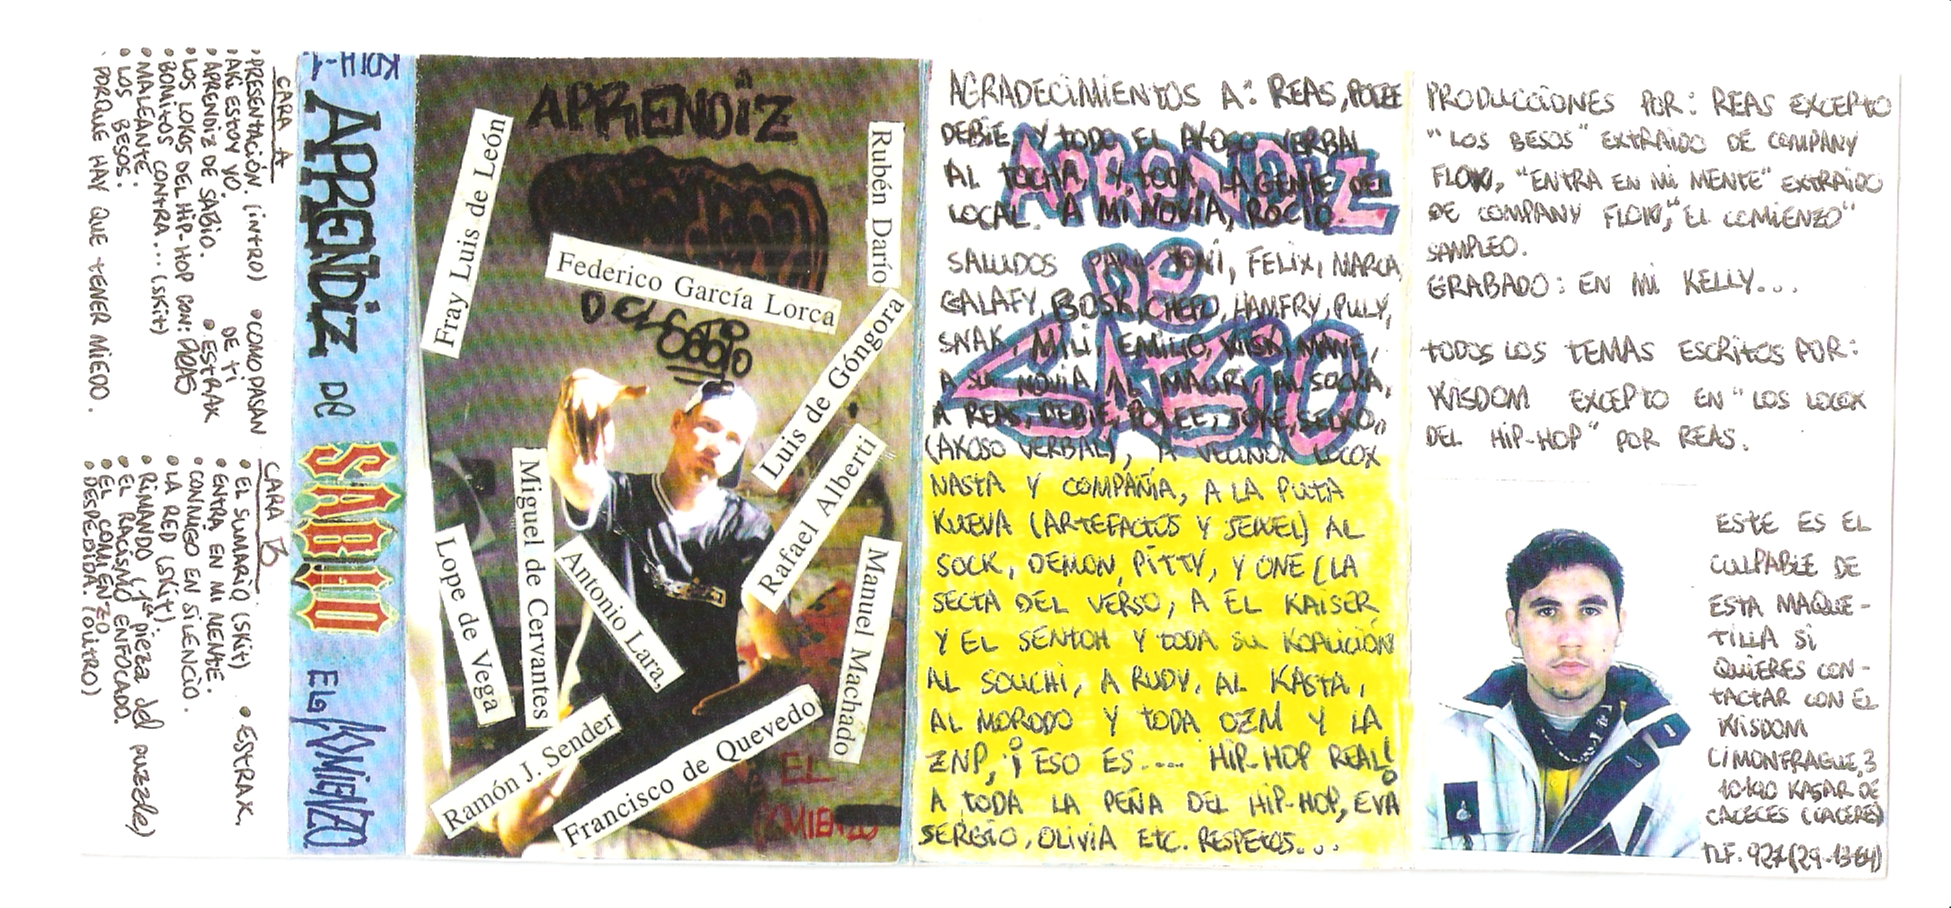 CARA A
• PRESENTACIÓN. (intro)
• AKI ESTOY YO.
• APRENDIZ DE SABIO.
• LOS LOKOS DEL HIP-HOP CON: REAS
• BOMITOS CONTRA... (SKIT)
• MALEANTE.
• LOS BESOS.
• PORQUE HAY QUE TENER MIEDO.
• COMO PASAN
DE TI
• ESTRAK
CARA B
• EL SUMARIO (SKIT)
• ENTRA EN MI MENTE.
• CONMIGO EN SILENCIO.
• LA RED (SKIT).
• RIMANDO (1ª PIEZA del PUZZLE)
• EL RACISMO ENFOCADO.
• EL COMIENZO
• DESPEDIDA. (OUTRO)
• ESTRAK.
KDTH-1
APRENDIZ DE SABIO EL KOMIENZO
APRENDIZ
DEL Sabio
Fray Luis de León
Rubén Darío
Federico García Lorca
Luis de Góngora
Rafael Alberti
Miguel de Cervantes
Antonio Lara,
Lope de Vega
Manuel Machado
Ramón J. Sender
Francisco de Quevedo
EL
KOMIENZO
APRENDIZ
DE
SABIO
AGRADECIMIENTOS A: REAS, POCEE
DEBIE Y TODO EL AKOSO VERBAL
AL TOCHA, Y TODA LA GENTE DEL
LOCAL. A MI NOVIA, ROCIO.
SALUDOS PARA TONI, FELIX, MARCA,
GALAFY, BOSK, CHEPO, HAMFRY, PULY,
SNAK, MILI, EMILIO, MANE,
A SU NOVIA, AL MAURI, AL SOCKA,
A REAS, DEBIE, POCEE, JOKE, SELKO,,
(AKOSO VERBAL), A VECINOX LOCOX
NASTA Y COMPAÑIA, A LA PUTA
KUEVA (ARTEFACTOS Y JEWEL) AL
SOCK, DEMON, PITTY, Y ONE (LA
SECTA DEL VERSO, A EL KAISER
Y EL SENTOH Y TODA SU KOALICIÓN
AL SOUCHI, A RUDY, AL KASTA,
AL MORODO Y TODA OZM Y LA
ZNP, ¡ESO ES.... HIP-HOP REAL!
A TODA LA PEÑA DEL HIP-HOP, EVA
SERGIO, OLIVIA ETC. RESPETOS...
PRODUCCIONES POR: REAS EXCEPTO
"LOS BESOS" EXTRAIDO DE COMPANY
FLOW, "ENTRA EN MI MENTE" EXTRAIDO
DE COMPANY FLOW, "EL COMIENZO"
SAMPLEO.
GRABADO: EN MI KELLY...
TODOS LOS TEMAS ESCRITOS POR:
WISDOM EXCEPTO EN "LOS LOCOX
DEL HIP-HOP" POR REAS.
ESTE ES EL
CULPABLE DE
ESTA MAQUE-
TILLA SI
QUIERES CON-
TACTAR CON EL
WISDOM
C/MONFRAGUE, 3
10190 KASAR DE
CACECES (CACERES)
TLF. 927(29-13-64)